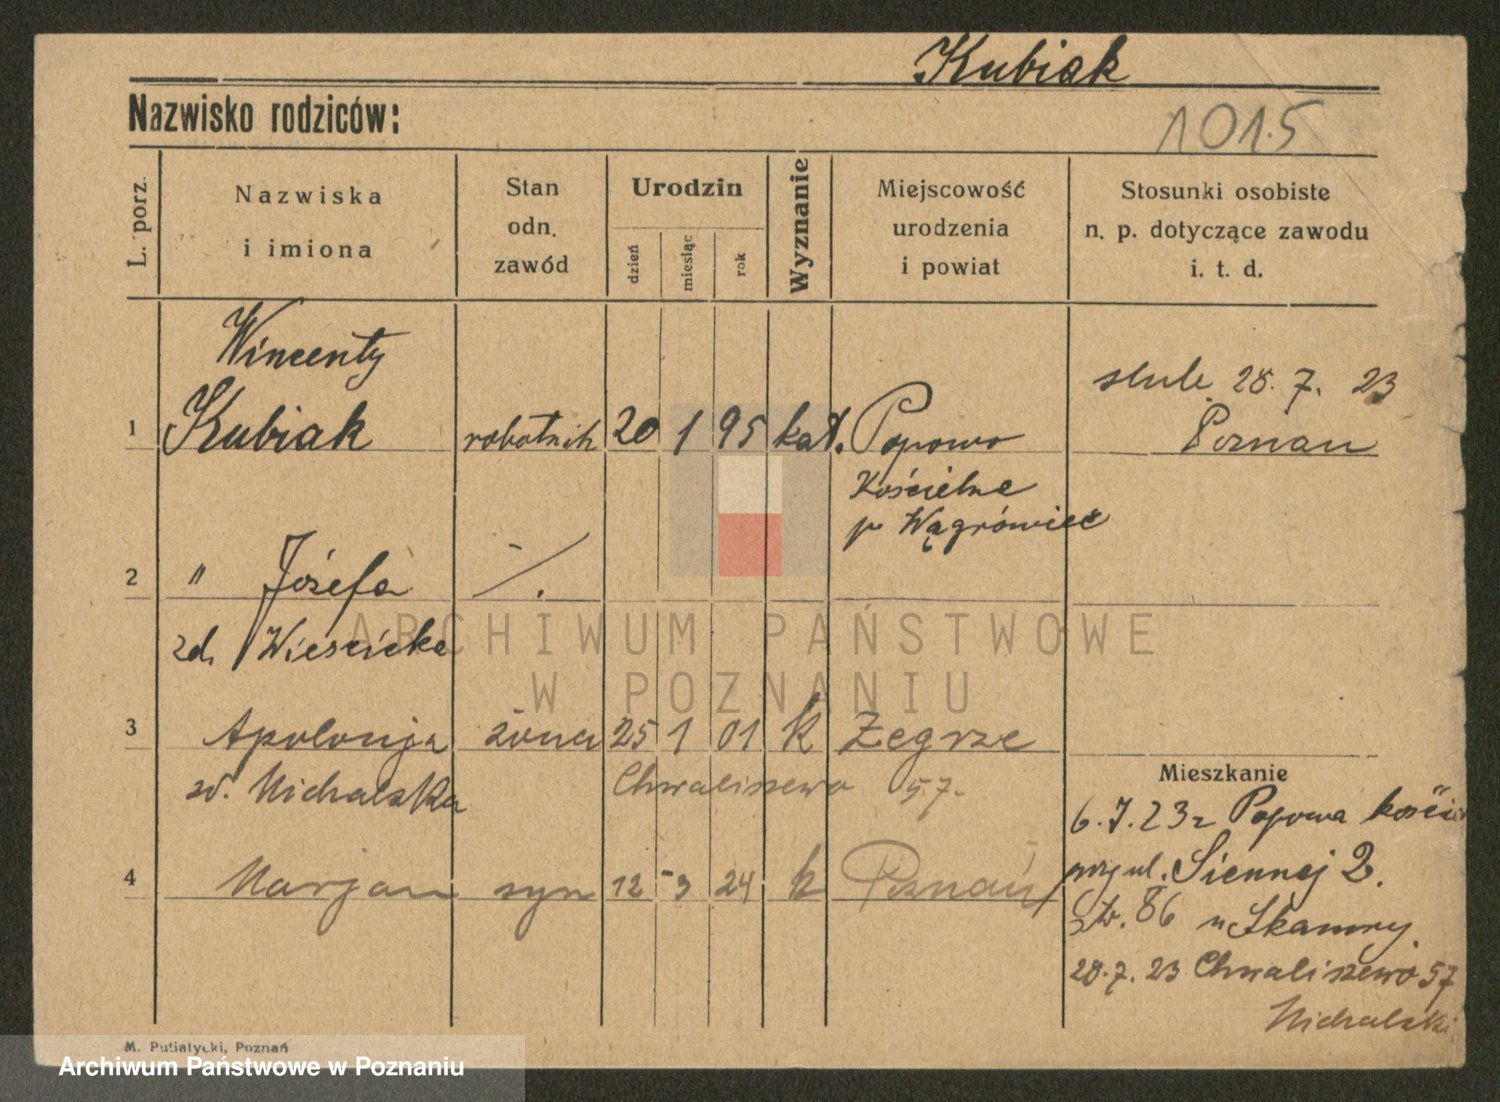 Kubiak
Nazwisko rodziców:
1015
L. porz.
Nazwiska
i imiona
Stan
odn.
zawód
Urodzin
dzień
miesiąc
rok
Wyznanie
Miejscowość
urodzenia
i powiat
Stosunki osobiste
n. p. dotyczące zawodu
i. t. d.
Wincenty
1 Kubiak robotnik 20 1 95 kat. Popowo
Kościelne
p Wągrówiec
28. 7. 23
Poznan
2 " Józefa
zd. Wieścicka
3 Apolonja żona 25 1 01 k Żegrze
Michalska
Chwaliszewo 57.
4 Marjan syn 12 3 24 k Poznań
Mieszkanie
6. 7. 23 z Popowa
przy ul. Siennej 2.
Str. 86 u Skamry.
28. 7. 23 Chwaliszewo 57
Michalski
M. Putiatycki, Poznań
ARCHIWUM PAŃSTWOWE
W POZNANIU
Archiwum Państwowe w Poznaniu